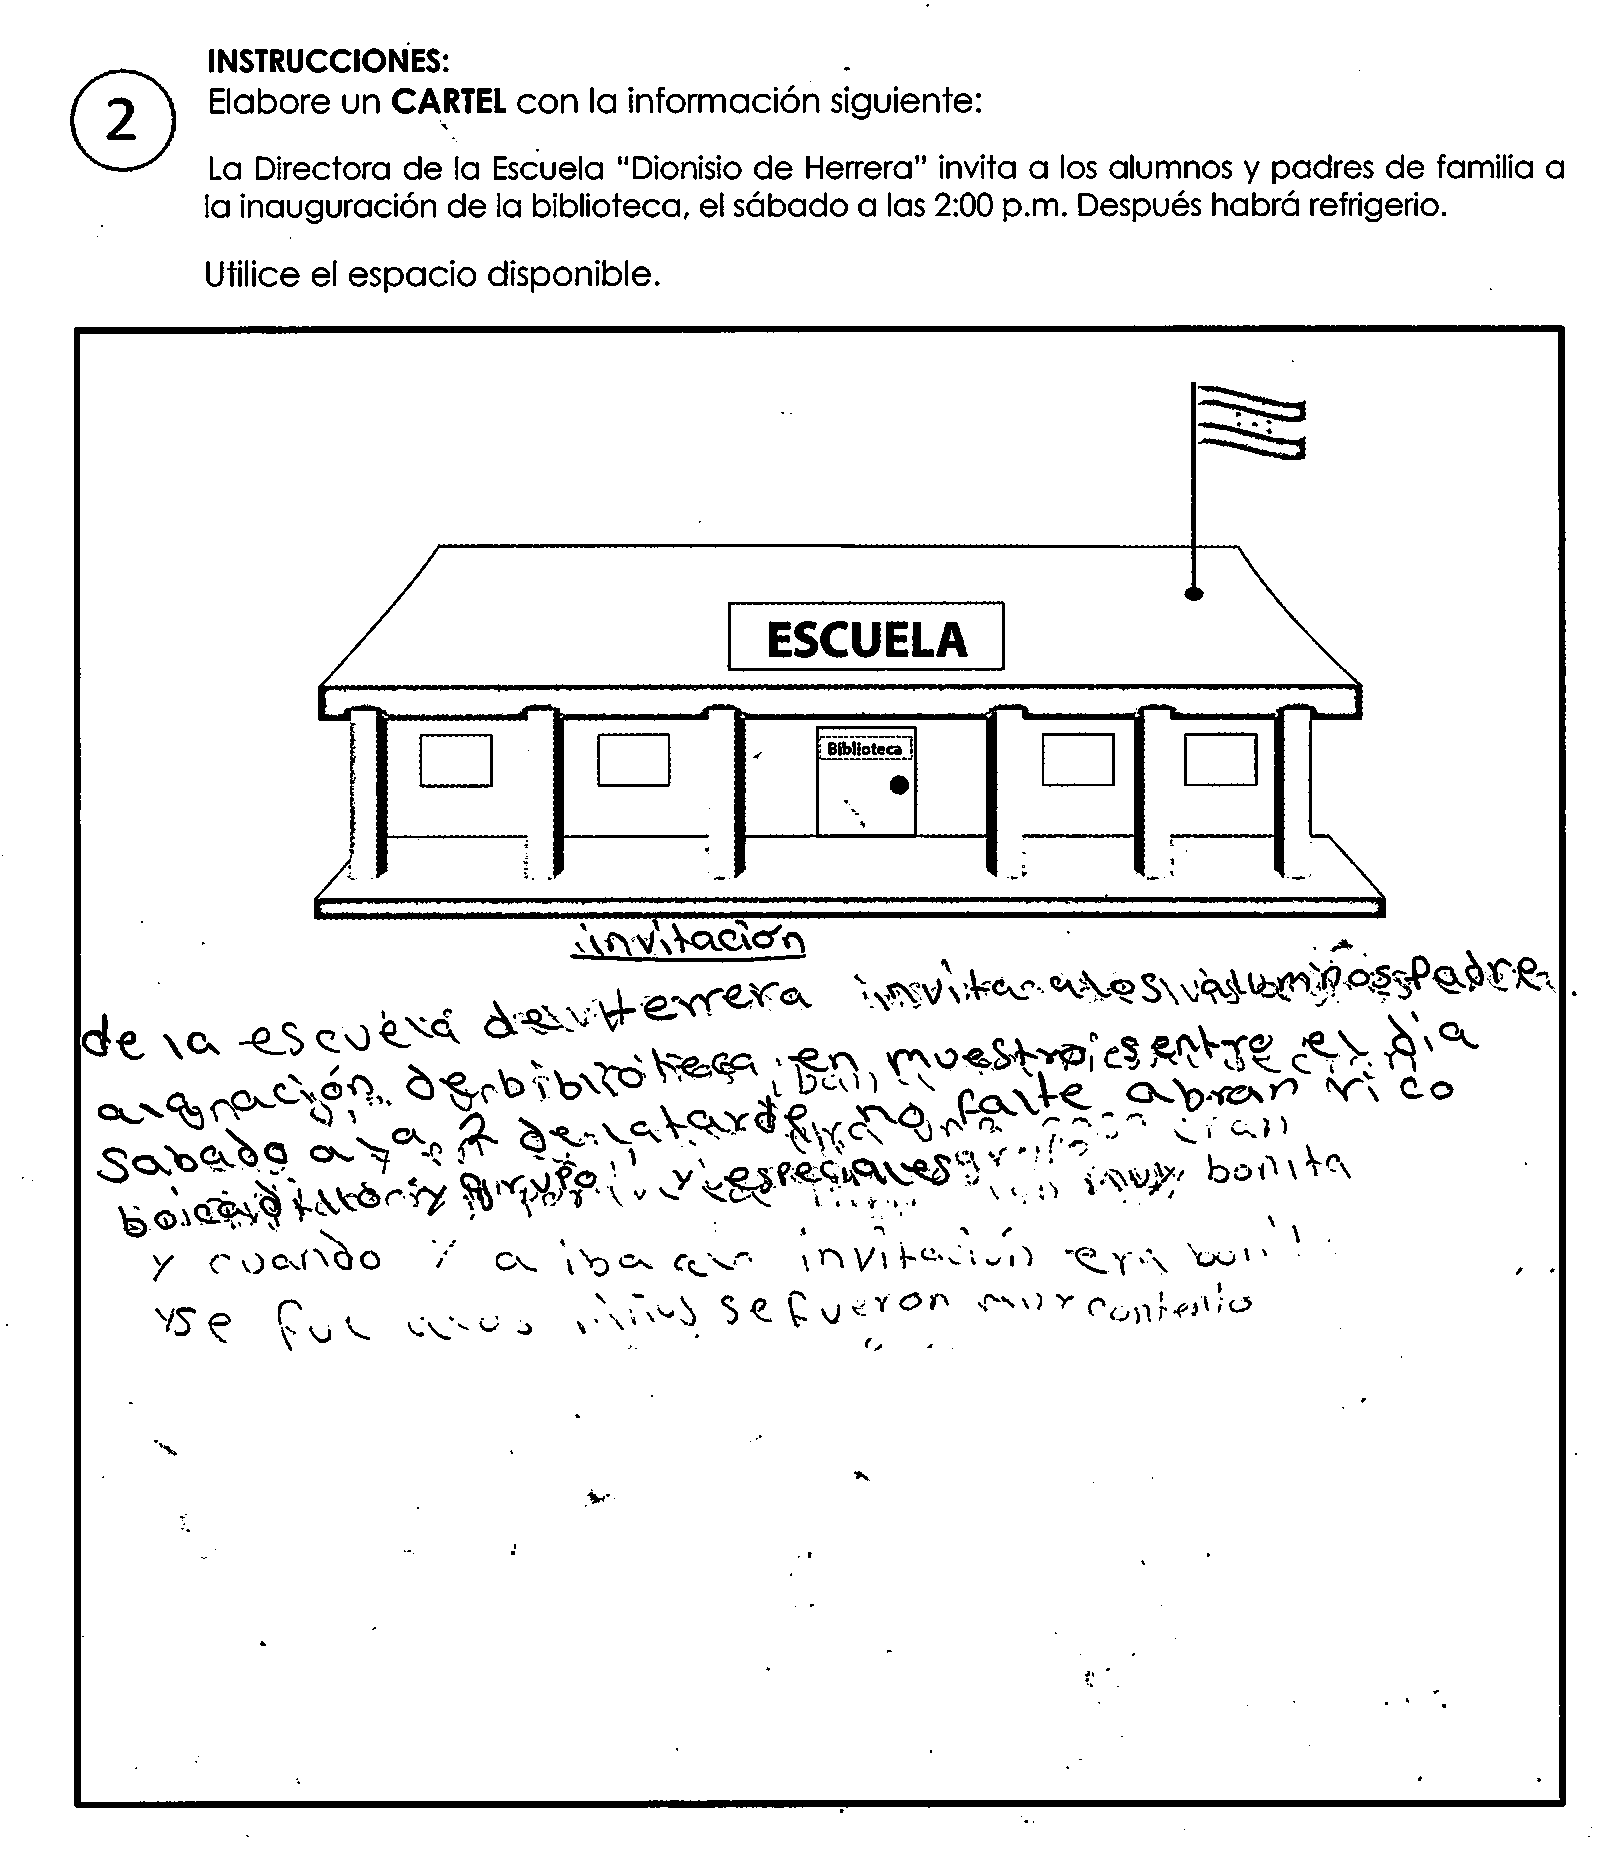 INSTRUCCIONES:
2
Elabore un CARTEL con la información siguiente:
La Directora de la Escuela "Dionisio de Herrera" invita a los alumnos y padres de familia a
la inauguración de la biblioteca, el sábado a las 2:00 p.m. Después habrá refrigerio.
Utilice el espacio disponible.
ESCUELA
Biblioteca
invitación
de la escuela de Herrera invita a los alumnos Padre
de en muestro entre el dia
Sabado a la 2 de la tarde no falte abran rico
y grupo y especiales muy bonita
y cuando invitación era
yse niños se fueron muy contento